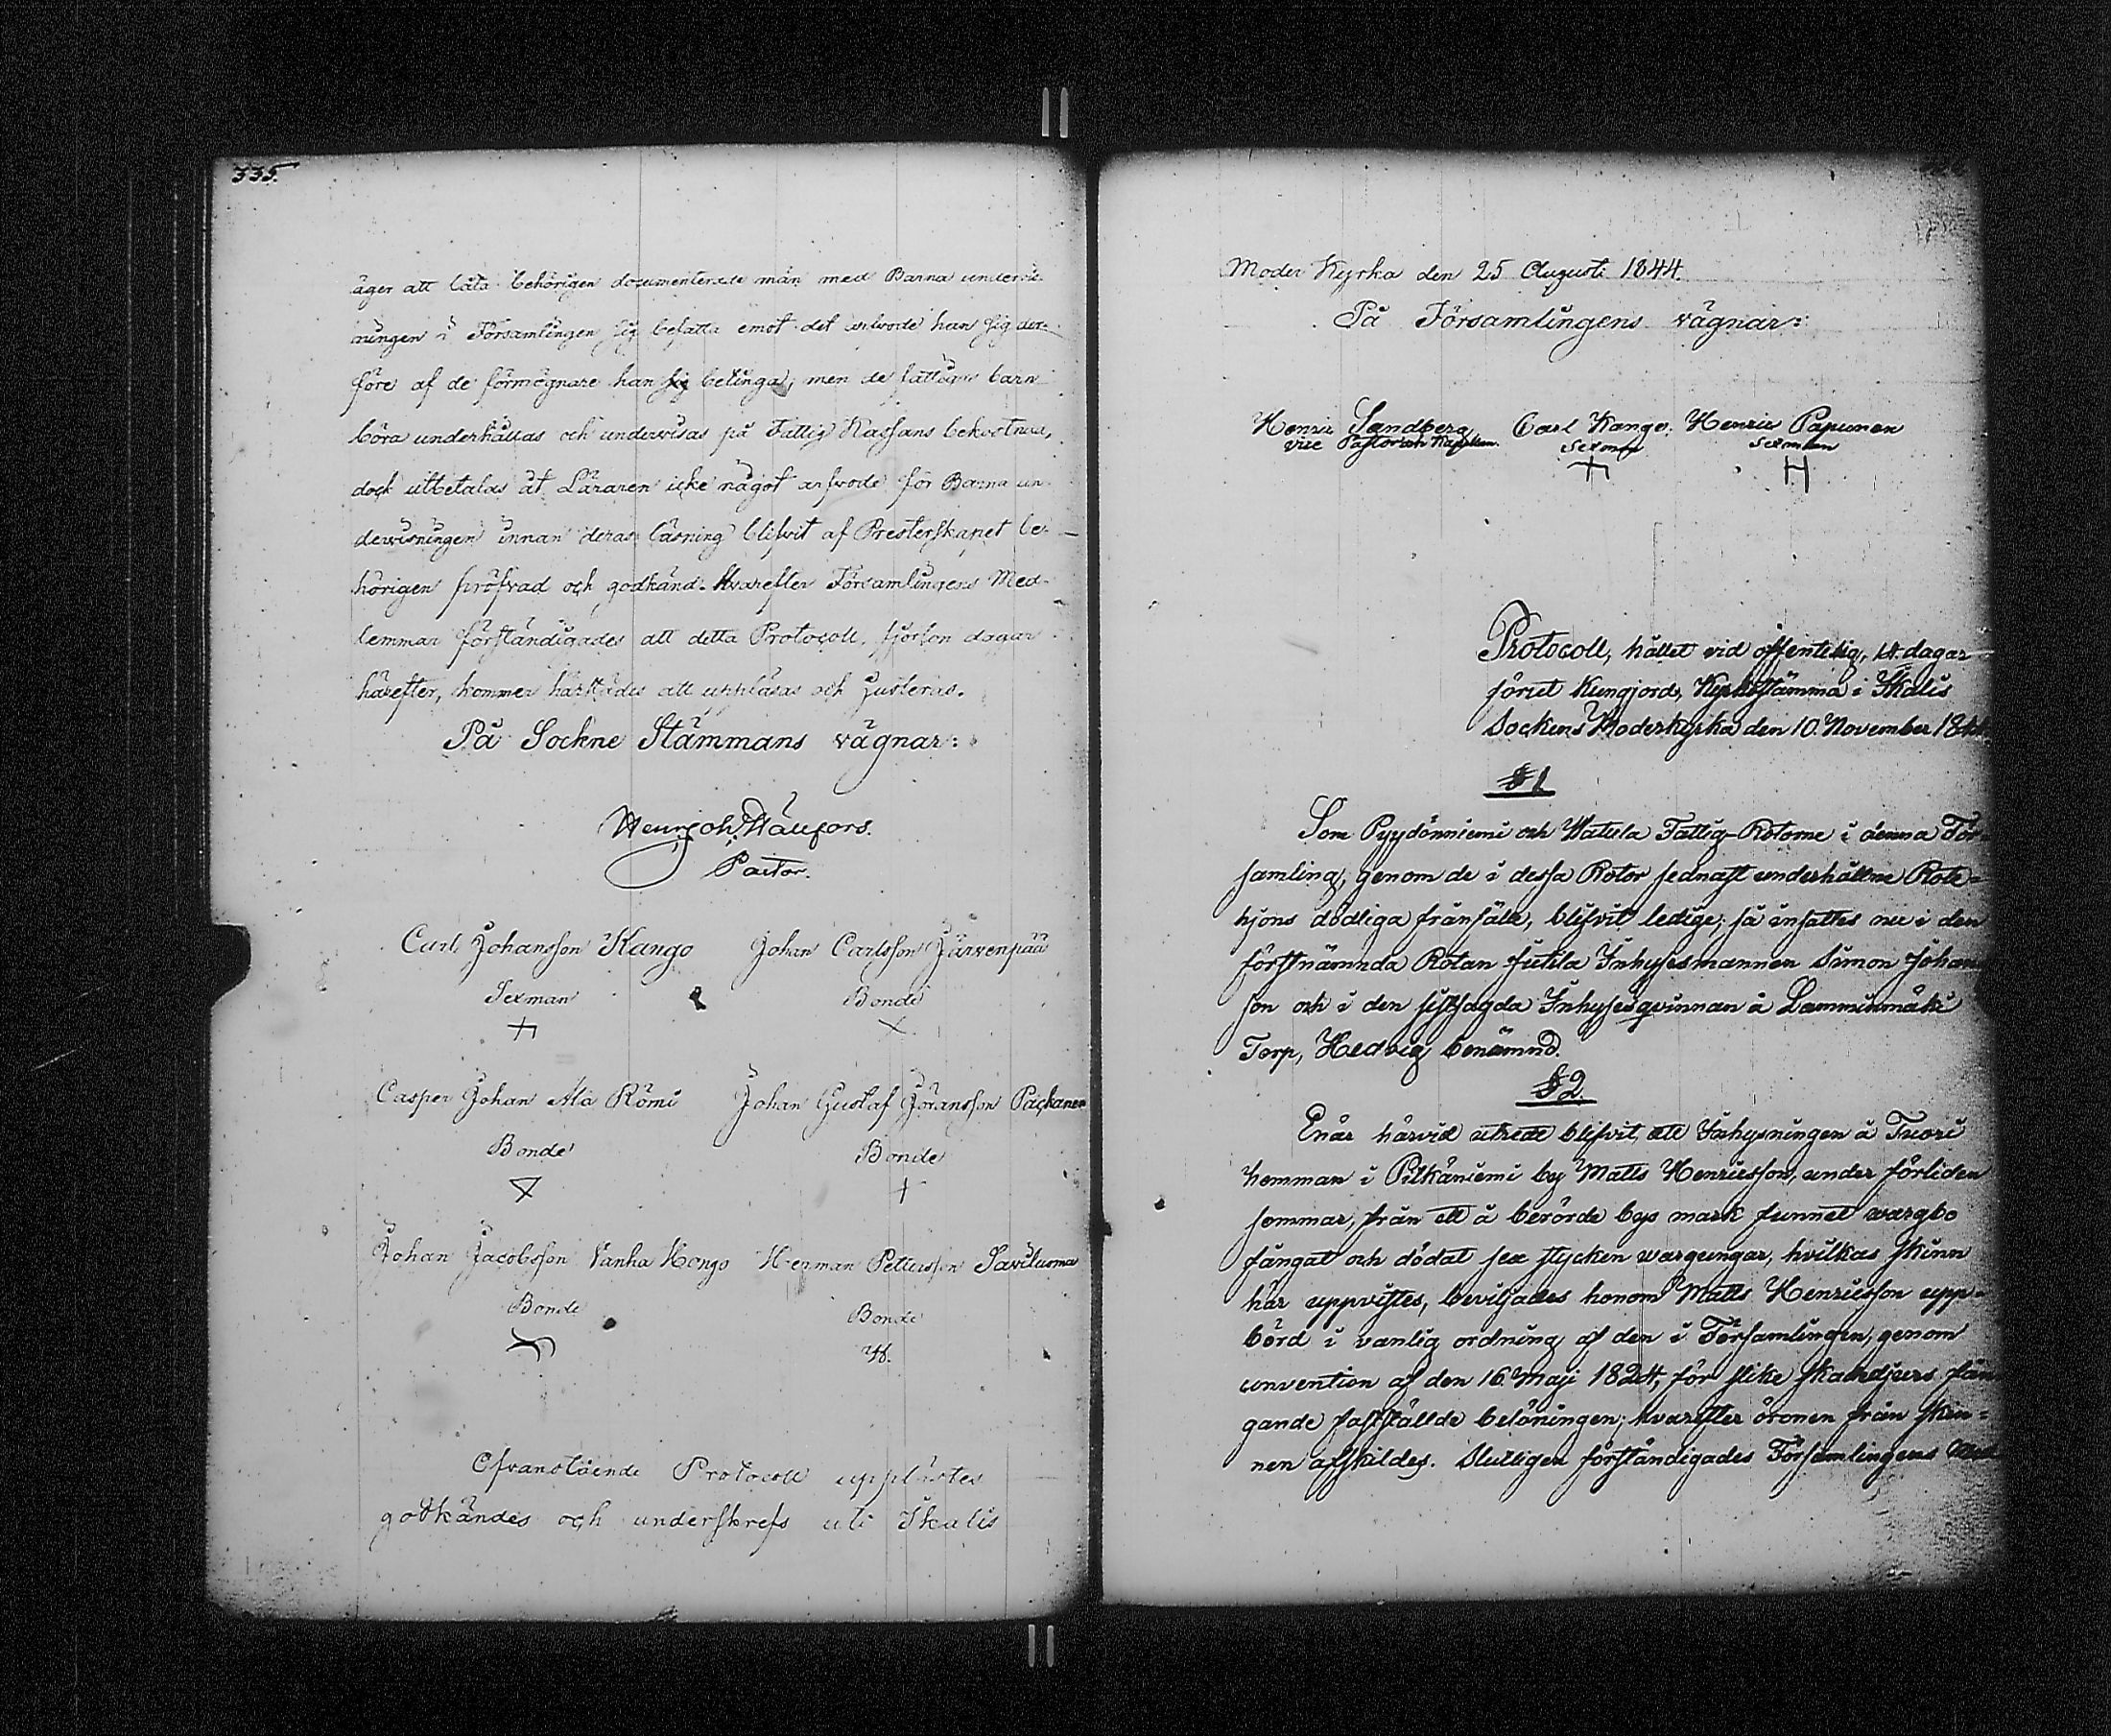 335.
äger att låta behörigen documenterade män med Barna undervis-
ningen i Församlingen sig befatta emot det arfvode han sig der-
före af de förmögnare kan sig betinga, men de fattigas barn
böra underhållas och undervisas på Fattig Kassans bekostnad,
dock utbetalas åt Läraren icke något arfvode för Barna un-
dervisningen innan deras läsning blifvit af Presterskapet be-
hörigen pröfvad och godkänd. Hvarefter Församlingens Med-
lemmar förständigades att detta Protocoll, fjorton dagar
härefter, kommer härstädes att uppläsas och Justeras.
På Sockne Stämmans vägnar:
Pastor.
Carl Johansson Kango Johan Carlsson Järvenpää
Sexman Bonde
Casper Johan Ala Römi Johan Gustaf Jöransson Packanen
Bonde Bonde
Johan Jacobsson Vanha Kongo Herman Petersson Saviluoma
Bonde Bonde
Ofvanstående Protocoll upplästes
godkändes och underskrefs uti Ikalis
Moder Kyrka den 25 Augusti 1844.
På Församlingens vägnar:
Henric Sandberg Carl Kango. Henric Papunen
vice Pastor Sexman Sexman
Protocoll, hållet vid offentelig, 14. dagar
förut kungjord, Kyrkostämma i Ikalis
Sockens Moderkyrka den 10. November 1844.
§ 1
Som Pyydönniemi och Vatula Fattig-Rotorne i denna För-
samling, genom de i dessa Rotor sednast underhållne Rote-
hjons dödliga frånfälle, blifvit ledige; så insattes nu i den
förstnämnda Rotan Jutila Inhysesmannen Simon Johans
son och i den sistsagda Inhysesqvinnan å Lamminmäki
Torp, Hedvig benämnd.
§ 2.
Enär härvid utredt blifvit, att Inhysningen å Tuori
hemman i Pitkäniemi by Matts Henricsson, under förliden
sommar, från ett å berörde bys mark funnet vargbo
fångat och dödat sex stycken vargungar, hvilkas skinn
här uppvistes, beviljades honom Matts Henricsson upp-
börd i vanlig ordning af den i Församlingen, genom
convention af den 16. Maji 1824, för slike skadedjurs fån
gande fastställde belöningen; hvarefter öronen från skin-
nen afskildes. Slutligen förständigades Församlingens Med